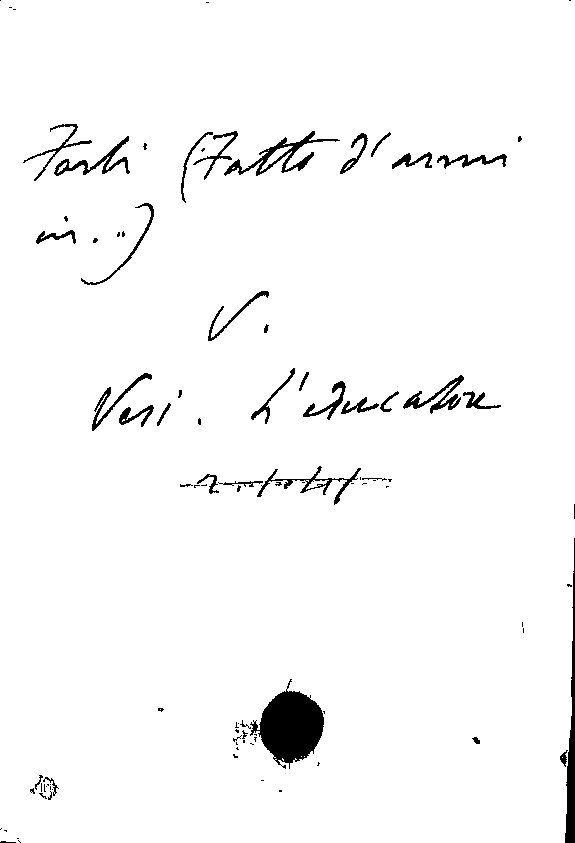 Forlì (Fatto d'armi
in...)
V.
Vesi. L'educatore